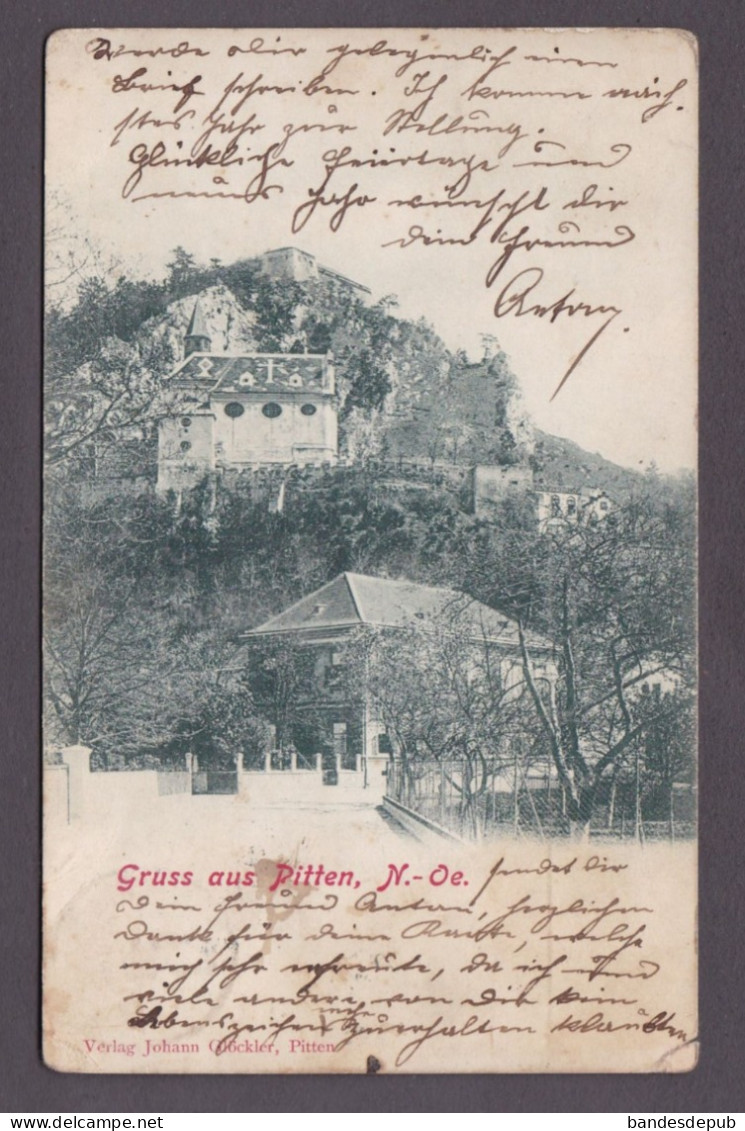 werde dir gelegenlich einen
Brief schreiben. Ich komme näch-
stes Jahr zur Stellung.
Glückliche Feiertage und
neues Jahr wünscht dir
dein Freund
Anton.
Gruss aus Pitten, N.-Oe.
sendet dir
Dein Freund Anton, herzlichen
Dank für deine Karte, welche
mich sehr erfreute, da ich und
viele andere, von Dir kein
Lebenszeichen mehr zuerhalten klaubten
Verlag Johann Glöckler, Pitten
bandesdepub
www.delcampe.net